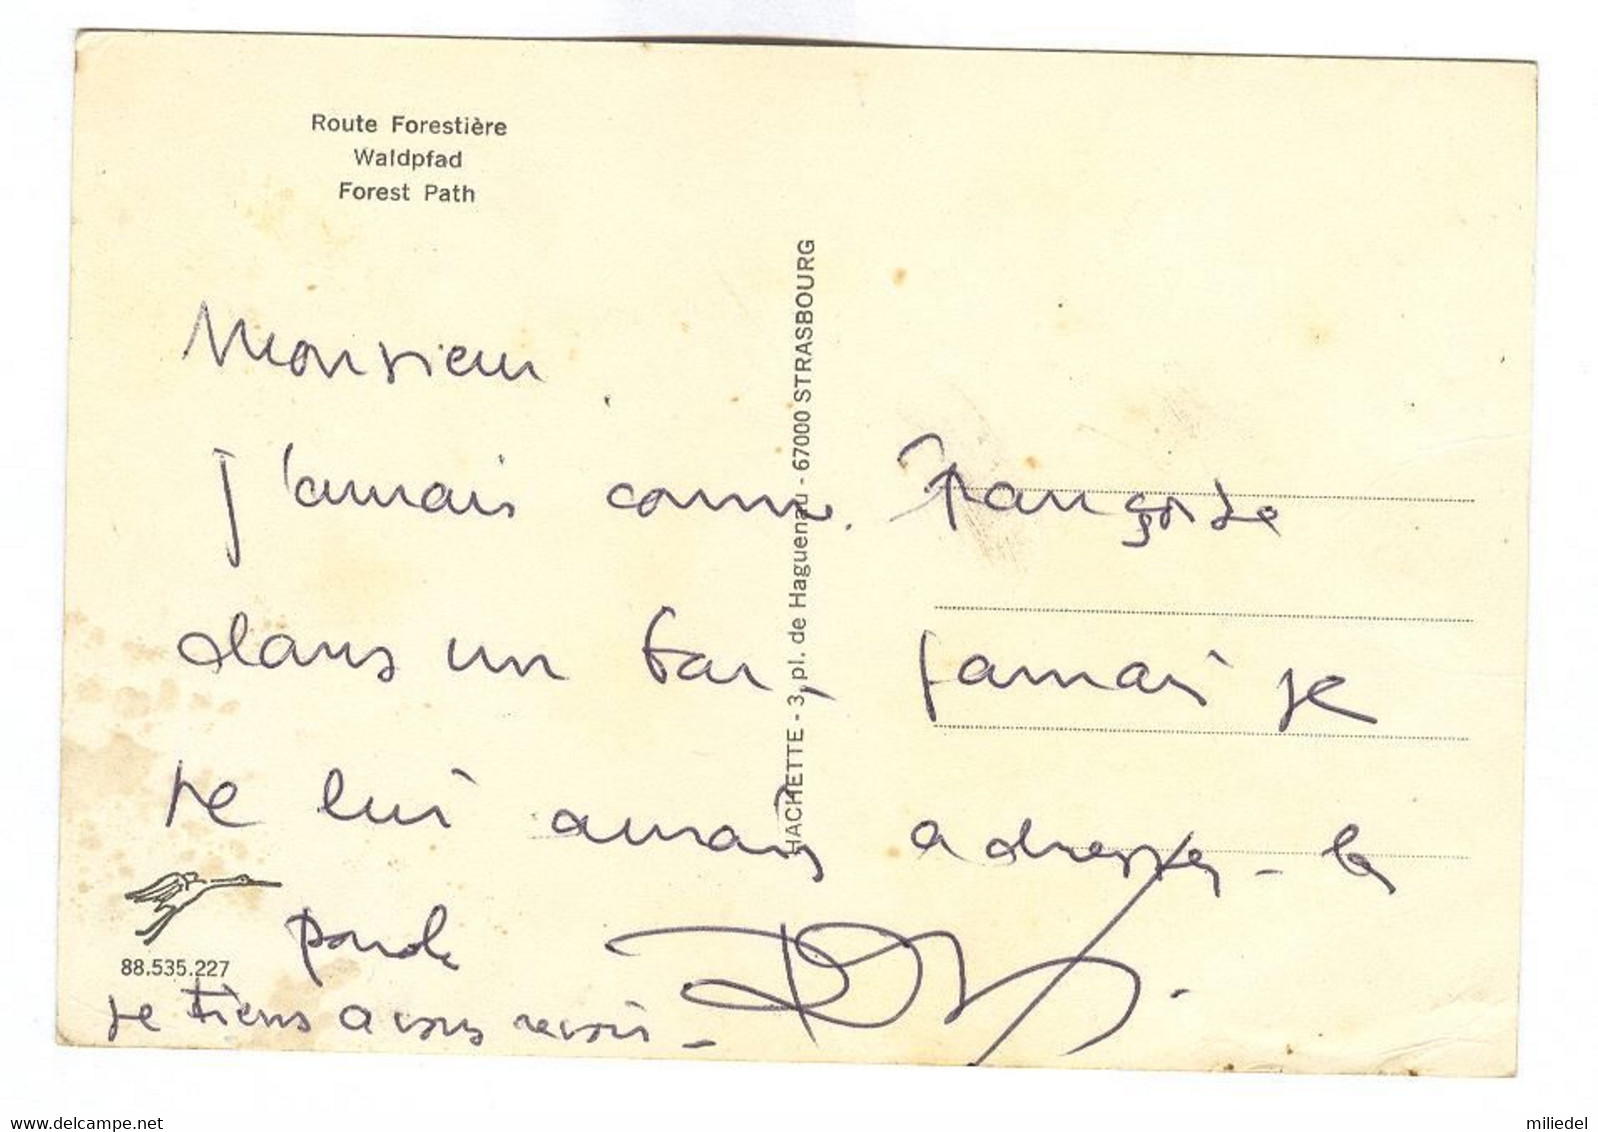 Route Forestière
Waldpfad
Forest Path
HACHETTE - 3, pl. de Haguenau - 67000 STRASBOURG
Monsieur
Jamais connu Françoise
dans un bar, jamais je
ne lui aurais adresser la
parole
Je tiens a vous revoir -
88.535.227
www.delcampe.net
miliedel